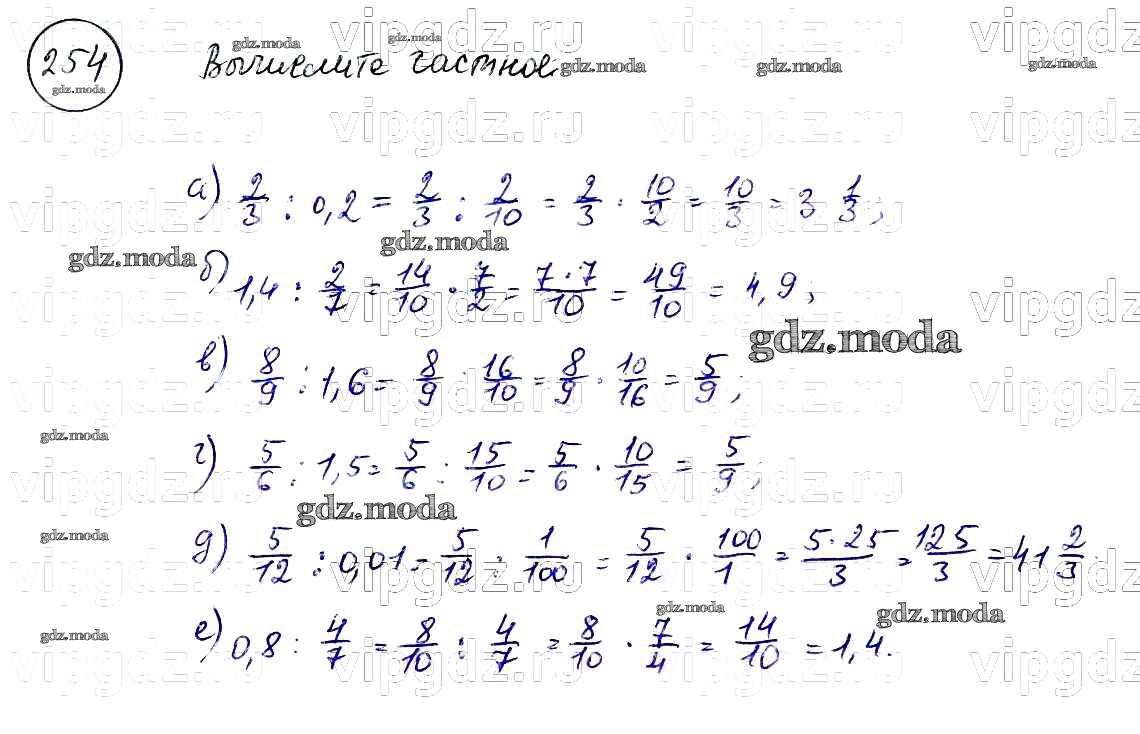 254 Вычислите частное.
а) 2/3 : 0,2 = 2/3 : 2/10 = 2/3 · 10/2 = 10/3 = 3 1/3;
б) 1,4 : 2/7 = 14/10 · 7/2 = 7·7/10 = 49/10 = 4,9;
в) 8/9 : 1,6 = 8/9 : 16/10 = 8/9 · 10/16 = 5/9;
г) 5/6 : 1,5 = 5/6 : 15/10 = 5/6 · 10/15 = 5/9;
д) 5/12 : 0,01 = 5/12 : 1/100 = 5/12 · 100/1 = 5·25/3 = 125/3 = 41 2/3.
е) 0,8 : 4/7 = 8/10 : 4/7 = 8/10 · 7/4 = 14/10 = 1,4.
vipgdz.ru
gdz.moda